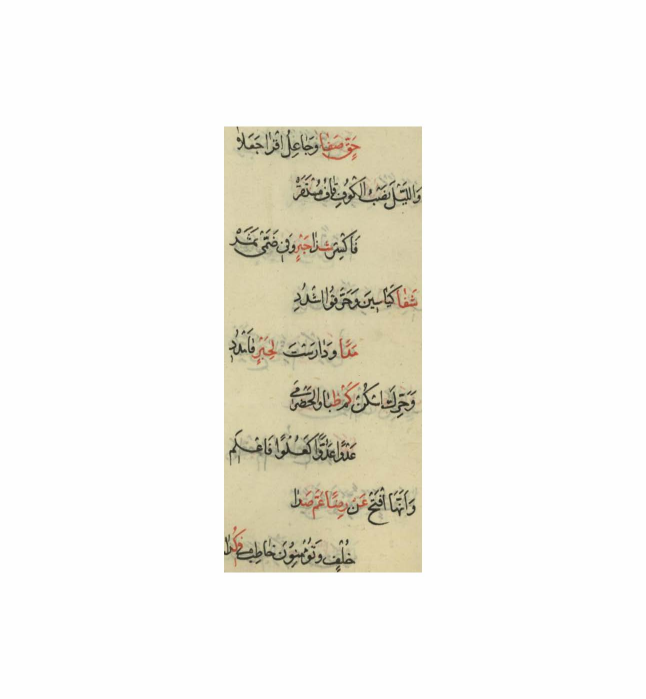 حَقٍّ صَفَا وَجَاعِلُ اقْرَا جَعَلَا
وَاللَّيْلَ نَصْبُ الْكُوفِ قَافُ مُسْتَقَرْ
فَاكْسِرْ شَذَا حَبْرٍ وَفِي ضَمَّىْ ثَمَرْ
شَفَا كَيَاسِينَ وَخَرَّقُوا اشْدُدِ
مَدًا وَدَارَسْتَ لِحَبْرٍ فَامْدُدِ
وَحَرِّكِ اسْكِنْ كَمْ ظُبًا وَالْحَضْرَمِي
عَدْوًا عُدُوًّا كَعُلُوًّا فَاعْلَمِ
وَإِنَّهَا افْتَحْ عَنْ رِضًا عَمَّ صَدَا
خُلْفٍ وَتُؤْمِنُونَ خَاطِبْ فِي كَدَا